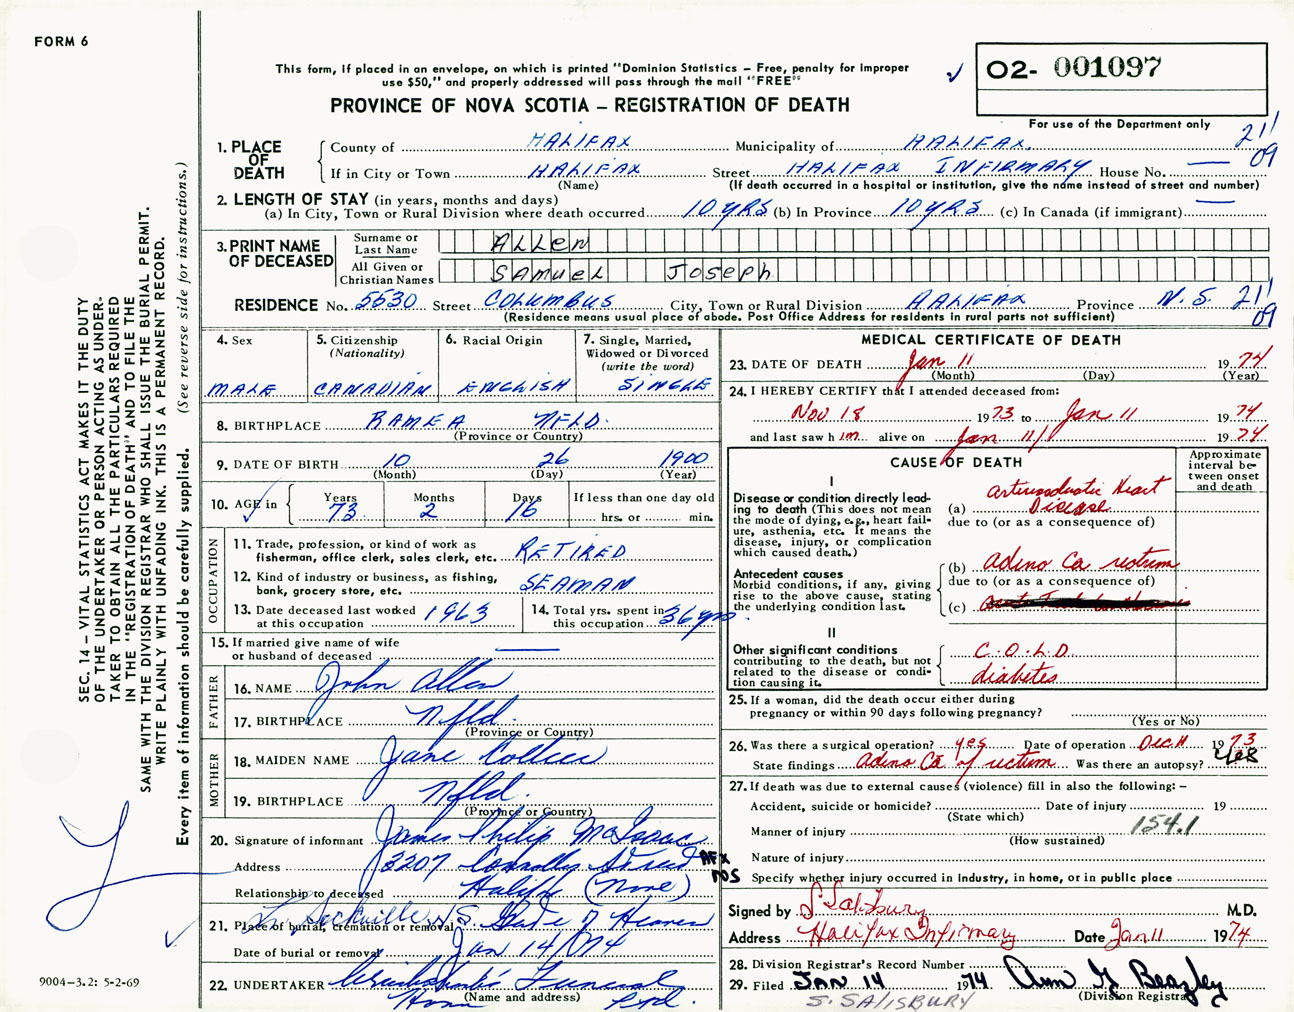 FORM 6
SEC. 14 – VITAL STATISTICS ACT MAKES IT THE DUTY
OF THE UNDERTAKER OR PERSON ACTING AS UNDER-
TAKER TO OBTAIN ALL THE PARTICULARS REQUIRED
IN THE "REGISTRATION OF DEATH" AND TO FILE THE
SAME WITH THE DIVISION REGISTRAR WHO SHALL ISSUE THE BURIAL PERMIT.
WRITE PLAINLY WITH UNFADING INK. THIS IS A PERMANENT RECORD.
Every item of information should be carefully supplied. (See reverse side for instructions.)
9004-3.2: 5-2-69
This form, if placed in an envelope, on which is printed "Dominion Statistics – Free, penalty for improper
use $50," and properly addressed will pass through the mail "FREE"
PROVINCE OF NOVA SCOTIA – REGISTRATION OF DEATH
02- 001097
For use of the Department only
21
09
1. PLACE OF DEATH
County of HALIFAX Municipality of HALIFAX.
If in City or Town HALIFAX Street HALIFAX INFIRMARY House No. —
(Name) (If death occurred in a hospital or institution, give the name instead of street and number)
2. LENGTH OF STAY (in years, months and days)
(a) In City, Town or Rural Division where death occurred 10 YRS (b) In Province 10 YRS (c) In Canada (if immigrant) —
3. PRINT NAME OF DECEASED
Surname or Last Name ALLEN
All Given or Christian Names SAMUEL JOSEPH
RESIDENCE No. 5530 Street COLUMBUS City, Town or Rural Division HALIFAX Province N.S. 21
(Residence means usual place of abode. Post Office Address for residents in rural parts not sufficient) 09
4. Sex MALE
5. Citizenship (Nationality) CANADIAN
6. Racial Origin ENGLISH
7. Single, Married, Widowed or Divorced (write the word) SINGLE
8. BIRTHPLACE RAMEA NFLD.
(Province or Country)
9. DATE OF BIRTH 10 26 1900
(Month) (Day) (Year)
10. AGE in Years 73 Months 2 Days 16 If less than one day old hrs. or min.
OCCUPATION
11. Trade, profession, or kind of work as
fisherman, office clerk, sales clerk, etc. RETIRED
12. Kind of industry or business, as fishing,
bank, grocery store, etc. SEAMAN
13. Date deceased last worked at this occupation 1963
14. Total yrs. spent in this occupation 36 yrs.
15. If married give name of wife
or husband of deceased —
FATHER
16. NAME John Allen
17. BIRTHPLACE Nfld.
(Province or Country)
MOTHER
18. MAIDEN NAME Jane Collier
19. BIRTHPLACE Nfld.
(Province or Country)
20. Signature of informant James Philip McIsaac
Address 3207 Connolly Street HFX NS
Relationship to deceased Halifax (None)
21. Place of burial, cremation or removal L. Sackville N.S. Gate of Heaven
Date of burial or removal Jan 14/74
22. UNDERTAKER Funeral
(Name and address) Home Ltd.
MEDICAL CERTIFICATE OF DEATH
23. DATE OF DEATH Jan 11 19 74
(Month) (Day) (Year)
24. I HEREBY CERTIFY that I attended deceased from:
Nov 18 1973 to Jan 11 19 74
and last saw h im alive on Jan 11/ 19 74
CAUSE OF DEATH
Approximate interval between onset and death
I
Disease or condition directly lead-
ing to death (This does not mean
the mode of dying, e.g., heart fail-
ure, asthenia, etc. It means the
disease, injury, or complication
which caused death.)
(a) Heart Disease
due to (or as a consequence of)
Antecedent causes
Morbid conditions, if any, giving
rise to the above cause, stating
the underlying condition last.
(b) Adeno Ca rectum
due to (or as a consequence of)
(c)
II
Other significant conditions
contributing to the death, but not
related to the disease or condi-
tion causing it.
C.O.L.D
diabetes
25. If a woman, did the death occur either during
pregnancy or within 90 days following pregnancy?
(Yes or No)
26. Was there a surgical operation? yes Date of operation Dec 11 19 73
State findings Adeno Ca of rectum Was there an autopsy? Yes
27. If death was due to external causes (violence) fill in also the following: –
Accident, suicide or homicide? Date of injury 19
(State which)
Manner of injury 154.1
(How sustained)
Nature of injury
Specify whether injury occurred in industry, in home, or in public place
Signed by S Salisbury M.D.
Address Halifax Infirmary Date Jan 11 1974
28. Division Registrar's Record Number
29. Filed JAN 14 1974 Ann G Beazley
S. SALISBURY (Division Registrar)